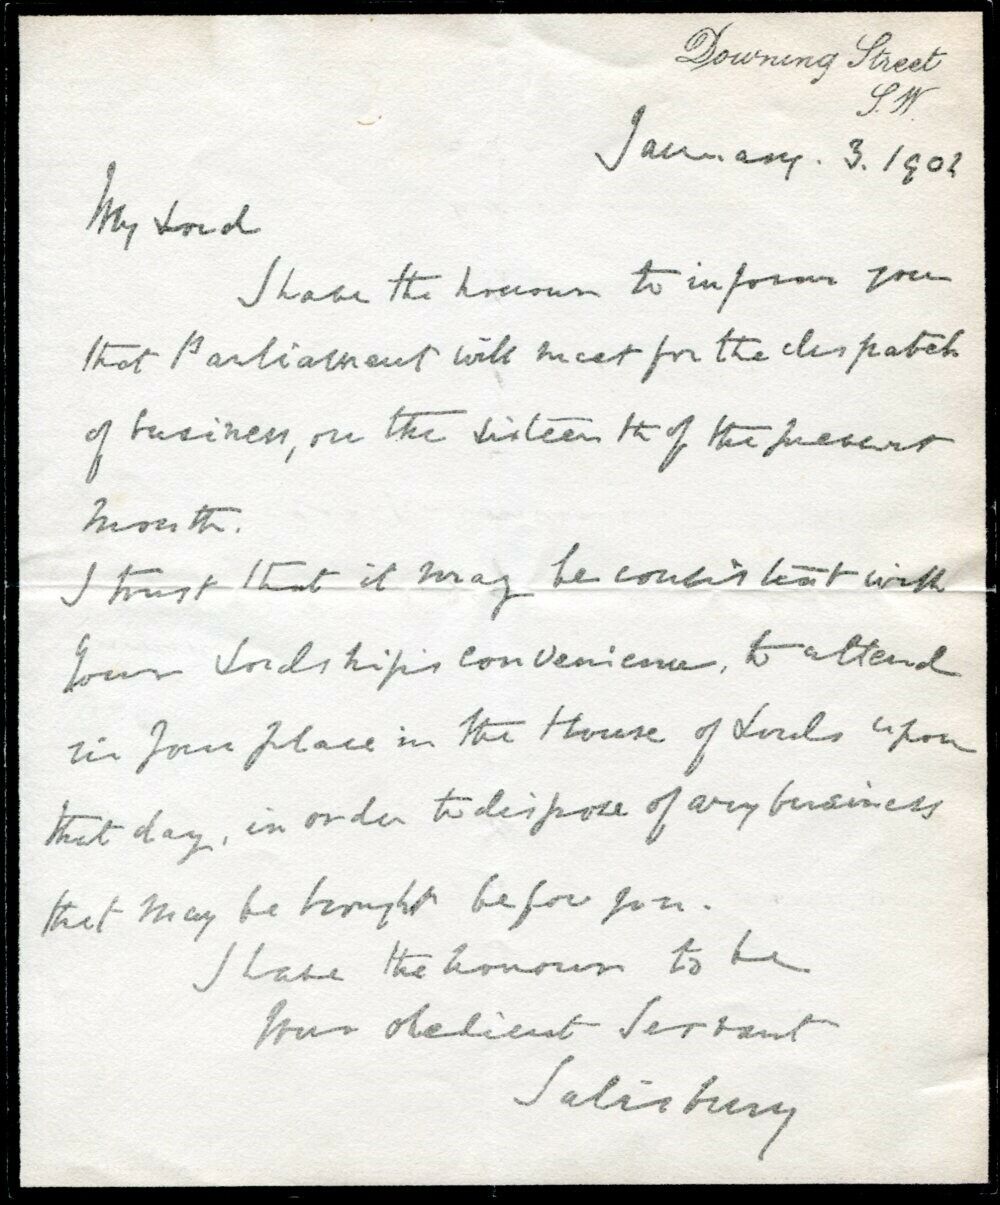 Downing Street
S.W.
January. 3. 1902
My Lord
I have the honour to inform you
that Parliament will meet for the despatch
of business, on the sixteenth of the present
month.
I trust that it may be consistent with
Your Lordship's convenience, to attend
in your place in the House of Lords upon
that day, in order to dispose of any business
that may be brought before you.
I have the honour to be
Your obedient Servant
Salisbury